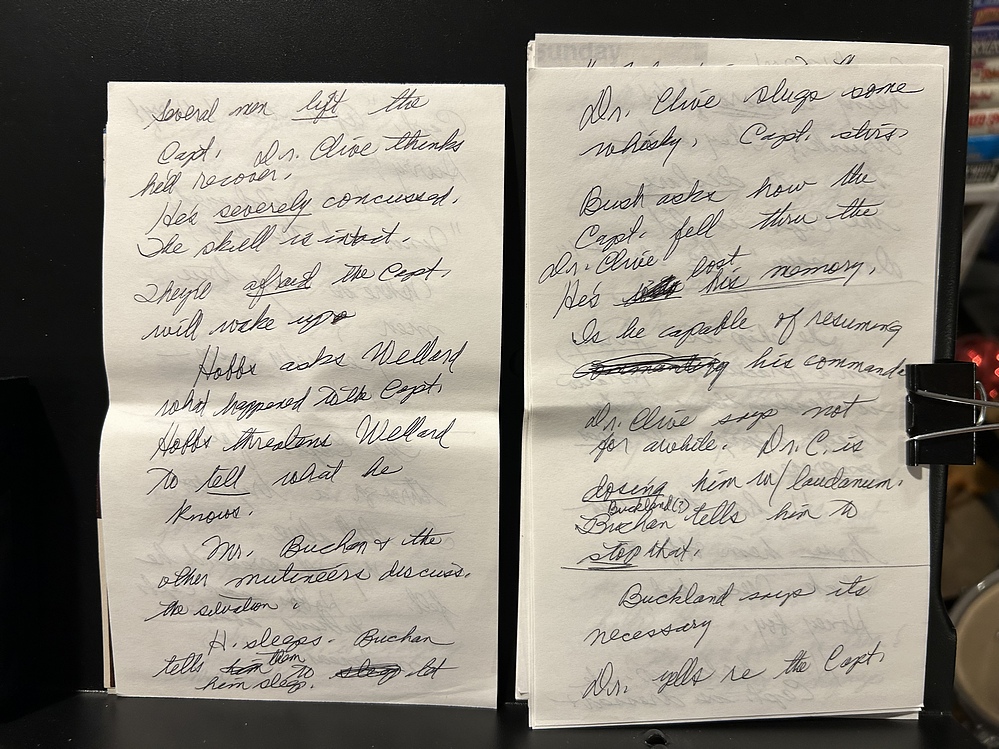 Several men lift the
Capt. Dr. Clive thinks
he'll recover.
He's severely concussed.
The skull is intact.
They're afraid the Capt.
will wake up
Hobbs asks Wellard
what happened to the Capt.
Hobbs threatens Wellard
to tell what he
knows.
Mr. Buchan & the
other mutineers discuss
the situation.
H. sleeps. Buchan
tells them to let
him sleep.
sunday
Dr. Clive slugs some
whisky. Capt. stirs.
Bush asks how the
Capt. fell thru the
Dr. Clive
He's lost his memory.
Is he capable of resuming
commanding his command
Dr. Clive says not
for awhile. Dr. C. is
dosing him w/ laudanum.
Buckland(?)
Buchan tells him to
stop that.
Buckland says its
necessary
Dr. yells re the Capt.